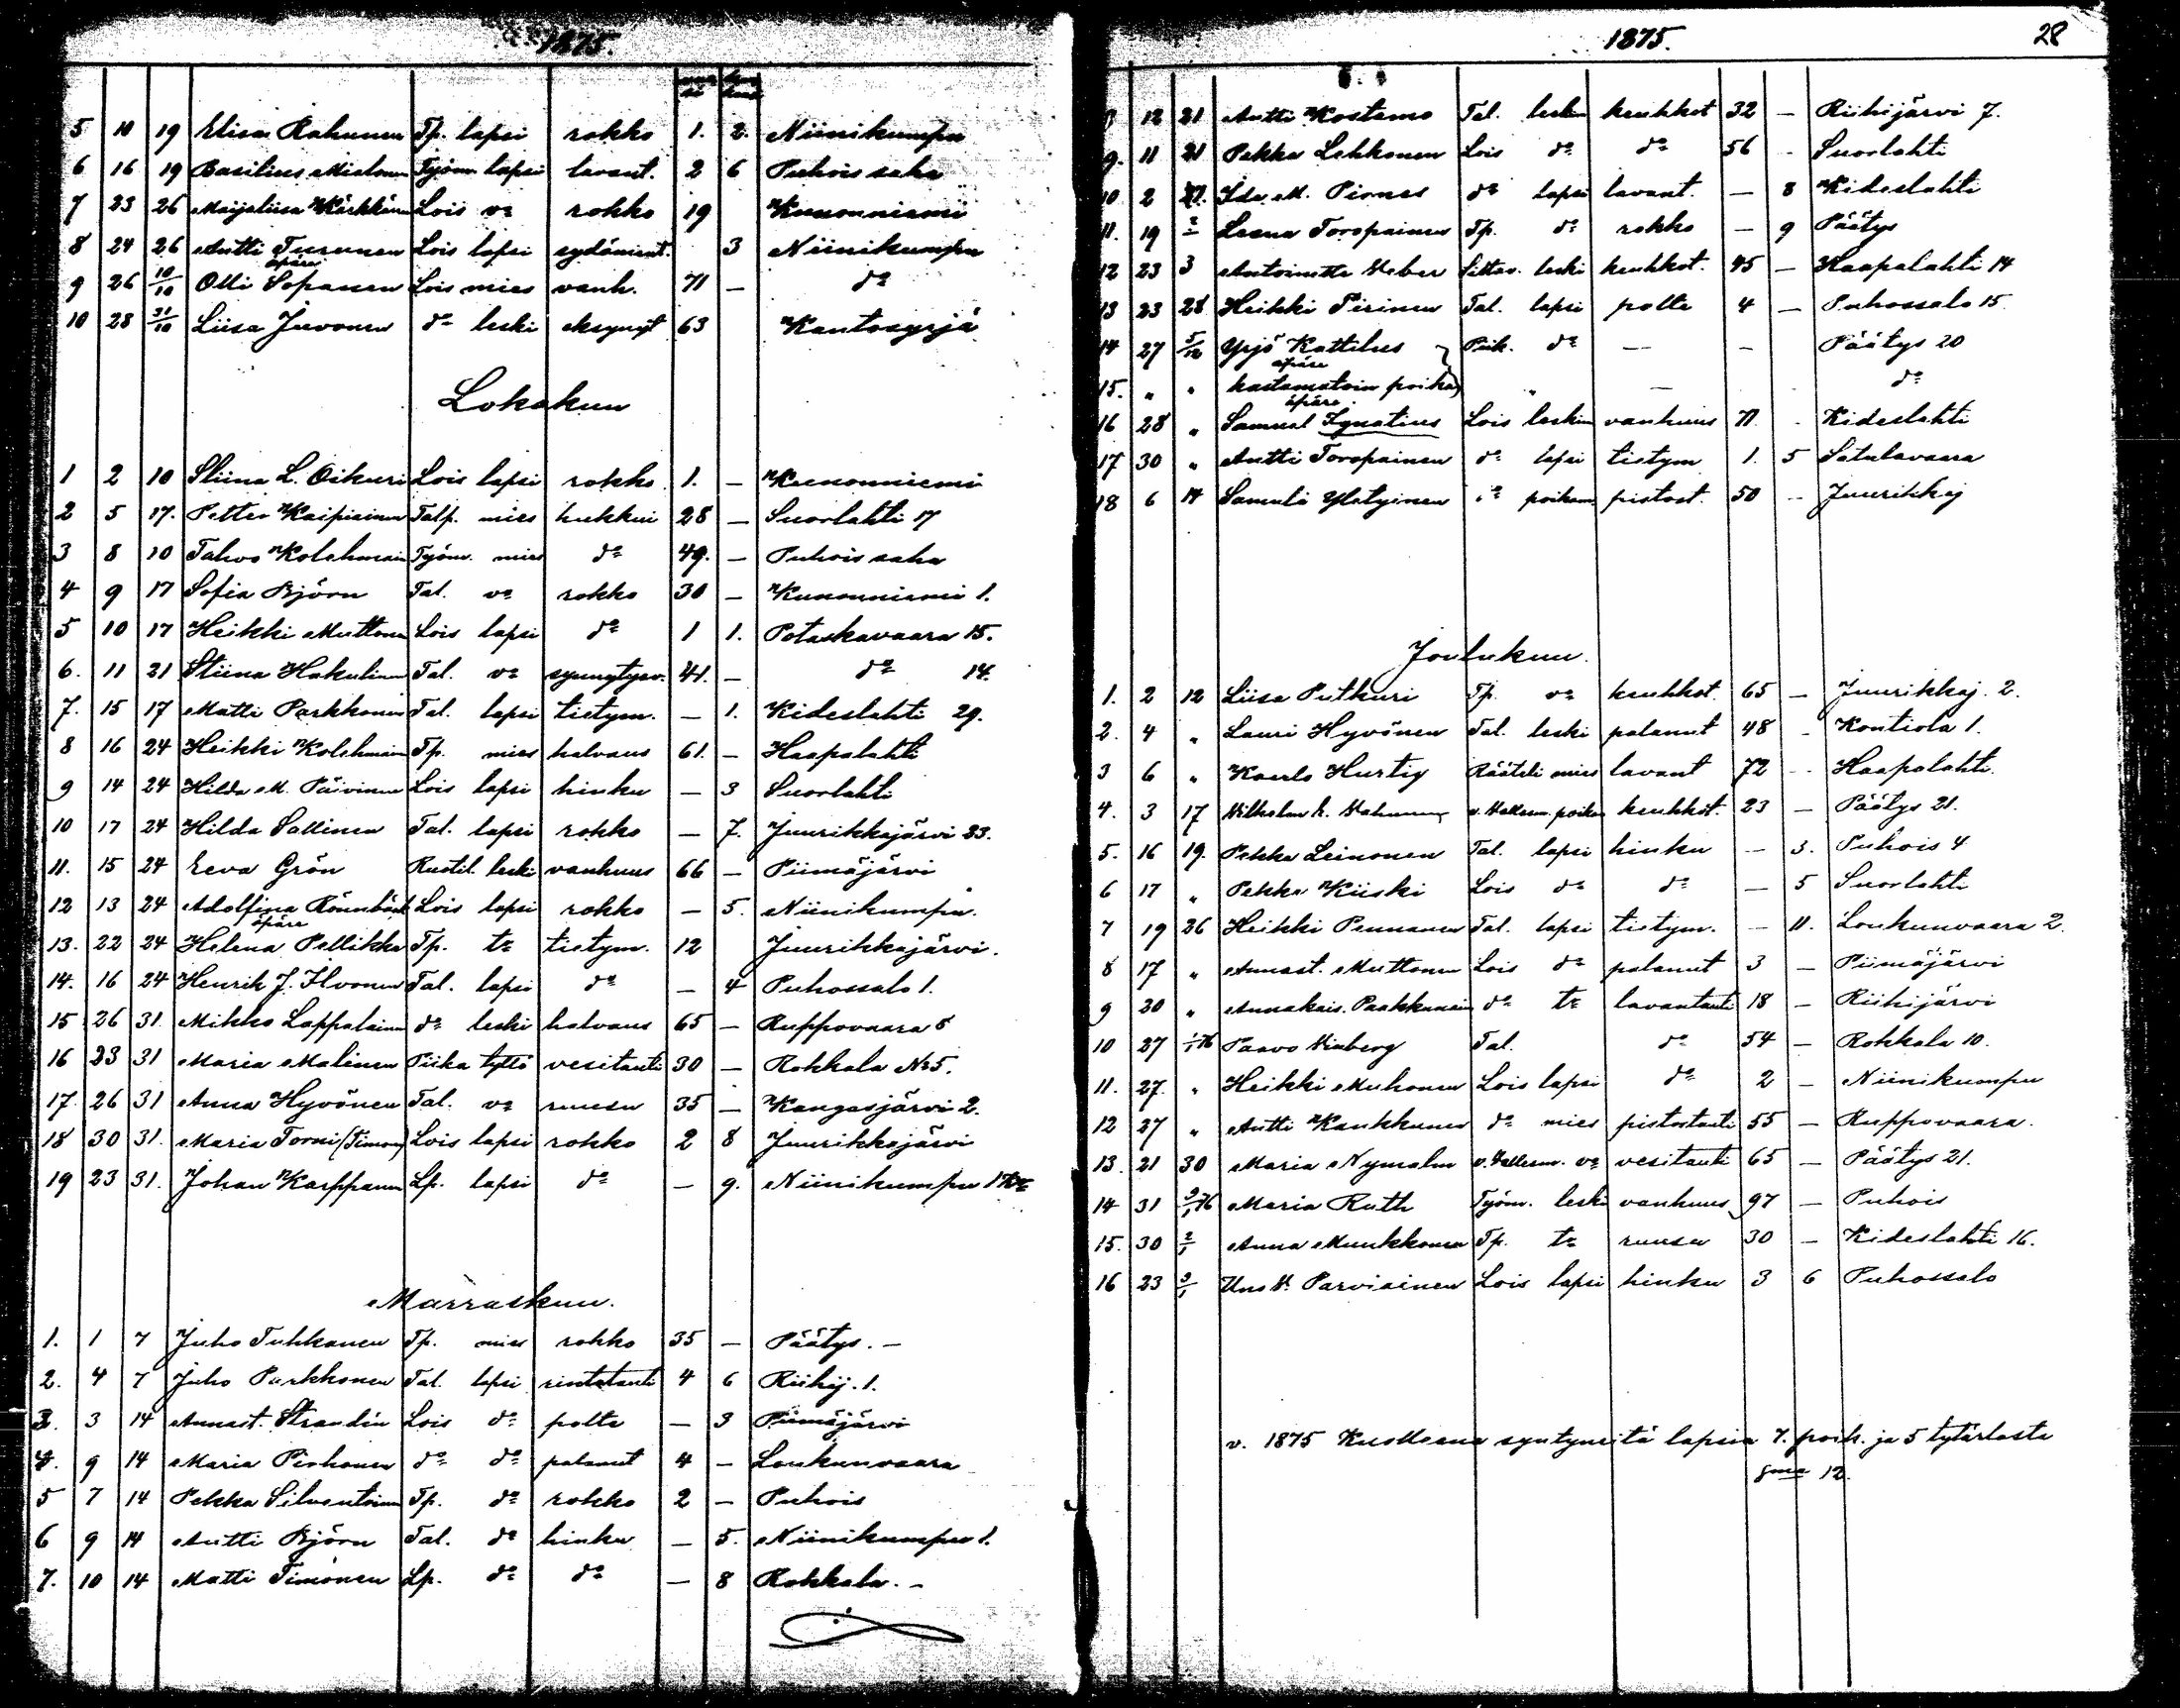 1875.
5 10 19 Elisa Rahunen Tp. lapsi rokko 1. 2. Niinikumpu
6 16 19 Basilius Mielonen Työm. lapsi lavant. 2 6 Puhois saha
7 23 26 Maijaliisa Kärkkäin Lois vo rokko 19 Kunonniemi
8 24 26 Antti Turunen Lois lapsi sydämient. 3 Niinikumpu
äpärä
9 26 10/10 Olli Sopanen Lois mies vanh. 71 — do
10 28 31/10 Liisa Juvonen do leski eksynyt 63 Kantosyrjä
Lokakuu
1 2 10 Stiina L. Oikuri Lois lapsi rokko 1. — Kunonniemi
2 5 17. Petter Kaipiainen Talp. mies hukkui 28 — Suorlahti 17
3 8 10 Tahvo Kolehmain Työm. mies do 49. — Puhois saha
4 9 17 Sofia Björn Tal. vo rokko 30 — Kunonniemi 1.
5 10 17 Heikki Muttonen Lois lapsi do 1 1. Potaskavaara 15.
6. 11 21 Stiina Hakulinen Tal. vo synnytysv. 41. — do 14.
7. 15 17 Matti Parkkonen Tal. lapsi tietym. — 1. Kideslahti 29.
8 16 24 Heikki Kolehmain Tp. mies halvaus 61. — Haapalahti
9 14 24 Hilda M. Päivinen Lois lapsi hinku — 3 Suorlahti
10 17 24 Hilda Sallinen Tal. lapsi rokko — 7. Juurikkajärvi 23.
11. 15 24 Eeva Grön Rustit. leski vanhuus 66 — Piimäjärvi
12 13 24 Adolfina Rönnbäck Lois lapsi rokko — 5. Niinikumpu.
äpärä
13. 22 24 Helena Pellikka Tp. to tietym. 12 Juurikkajärvi.
14. 16 24 Henrik J. Ilvonen Tal. lapsi do — 4 Puhossalo 1.
15 26 31 Mikko Lappalainen do leski halvaus 65 — Ruppovaara 5
16 23 31 Maria Malinen Piika tyttö vesitauti 30 — Rokkala No 5.
17. 26 31 Anna Hyvönen Tal. vo ruusu 35 — Kangasjärvi 2.
18 30 31. Maria Torni (Timon) Lois lapsi rokko 2 8 Juurikkajärvi
19 23 31. Johan Karppanen Lp. lapsi do — 9. Niinikumpu
Marraskuu.
1. 1 7 Juho Tuhkanen Tp. mies rokko 35 — Päätys. —
2. 4 7 Juho Parkkonen Tal. lapsi rintatauti 4 6 Riihij. 1.
3. 3 14 Annast. Strandén Lois do polte — 3 Piimäjärvi
4. 9 14 Maria Pirhonen do do palanut 4 — Loukunvaara
5 7 14 Pekka Silventoinen Tp. do rokko 2 — Puhois
6 9 14 Antti Björn Tal. do hinku — 5. Niinikumpu 1.
7. 10 14 Matti Timonen Lp. do do — 8 Rokkala. —
1875. 28
8 12 21 Antti Kostamo Tal. leski keuhkot 32 — Riihijärvi 7.
9. 11 21 Pekka Lehkonen Lois do do 56 - Suorlahti
10. 2 Ida M. Piones do lapsi lavant. — 8 Kideslahti
11. 19 Leena Toropainen Tp. do rokko — 9 Päätys
12 23 3 Antoinette Weber leski keuhkot. 45 — Haapalahti 14
13 23 28 Heikki Pirinen Tal. lapsi polte 4 — Puhossalo 15
14 27 5/12 Yrjö Kattelus Piik. do — — Päätys 20
äpärä
15. " " kastamatoin poika " — do
äpärä
16 28 " Samuel Ignatius Lois leski vanhuus 71 - Kideslahti
17 30 " Antti Toropainen do lapsi tietym 1. 5 Satulavaara
18 6 14 Samuli Ylätyinen do poikam. pistost. 50 - Juurikkaj
Joulukuu.
1. 2 12 Liisa Putkuri Tp. vo keuhkot. 65 — Juurikkaj. 2.
2. 4 " Lauri Hyvönen Tal. leski palanut 48 - Kontiola 1.
3 6 " Kaarlo Hurtig Räätäli mies lavant 72 - Haapalahti.
4. 3 17 Wilhelm v. Vallesm. poika keuhkot. 23 — Päätys 21.
5. 16 19. Pekka Leinonen Tal. lapsi hinku — 3. Puhois 4
6 17 " Pekka Kiiski Lois do do — 5 Suorlahti
7 19 26 Heikki Pennanen Tal. lapsi tietym. — 11. Loukunvaara 2.
8 17 " Annast. Muttonen Lois do palanut 3 — Piimäjärvi
9 20 " Annakais. Paakkunain do to lavantauti 18 — Riihijärvi
10 27 1/1 76 Paavo Winberg Tal. do 54 — Rokkala 10.
11. 27. " Heikki Muhonen Lois lapsi do 2 — Niinikumpu
12 27 " Antti Kaukkunen do mies pistostauti 55 — Ruppovaara.
13. 21 30 Maria Nymalm v. Vallesm. vo vesitauti 65 — Päätys 21.
14 31 2/1 76 Maria Ruth Työm. leski vanhuus 97 — Puhois
15. 30 2/1 Anna Muukkonen Tp. to ruusu 30 — Kideslahti 16.
16 23 3/1 Uno V. Parviainen Lois lapsi hinku 3 6 Puhossalo
v. 1875 Kuolleena syntyneitä lapsia 7. poik. ja 5 tytärlasta
sma 12.